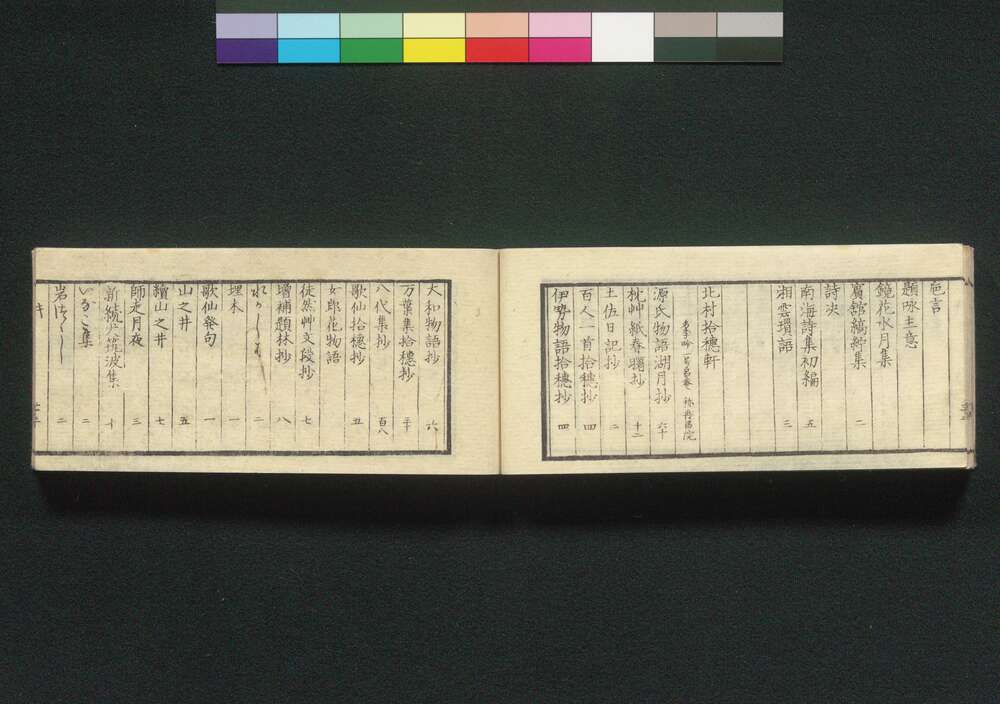 卮言
題咏主意
鏡花水月集
賓館縞紵集 二
詩决
南海詩集初編 五
湘雲瓚語 三
北村拾穗軒
季吟 一号呂菴 称再昌院
源氏物語湖月抄 六十
枕艸紙春曙抄 十二
土佐日記抄 二
百人一首拾穗抄 四
伊勢物語拾穗抄 四
大和物語抄 六
万葉集拾穗抄 三十
八代集抄 百八
歌仙拾穗抄 五
女郎花物語
徒然艸文段抄 七
增補題林抄 八
二
埋木 一
歌仙発句 一
山之井 五
續山之井 七
師走月夜 三
新續犬筑波集 十
いなご集 二
岩つゝじ 二